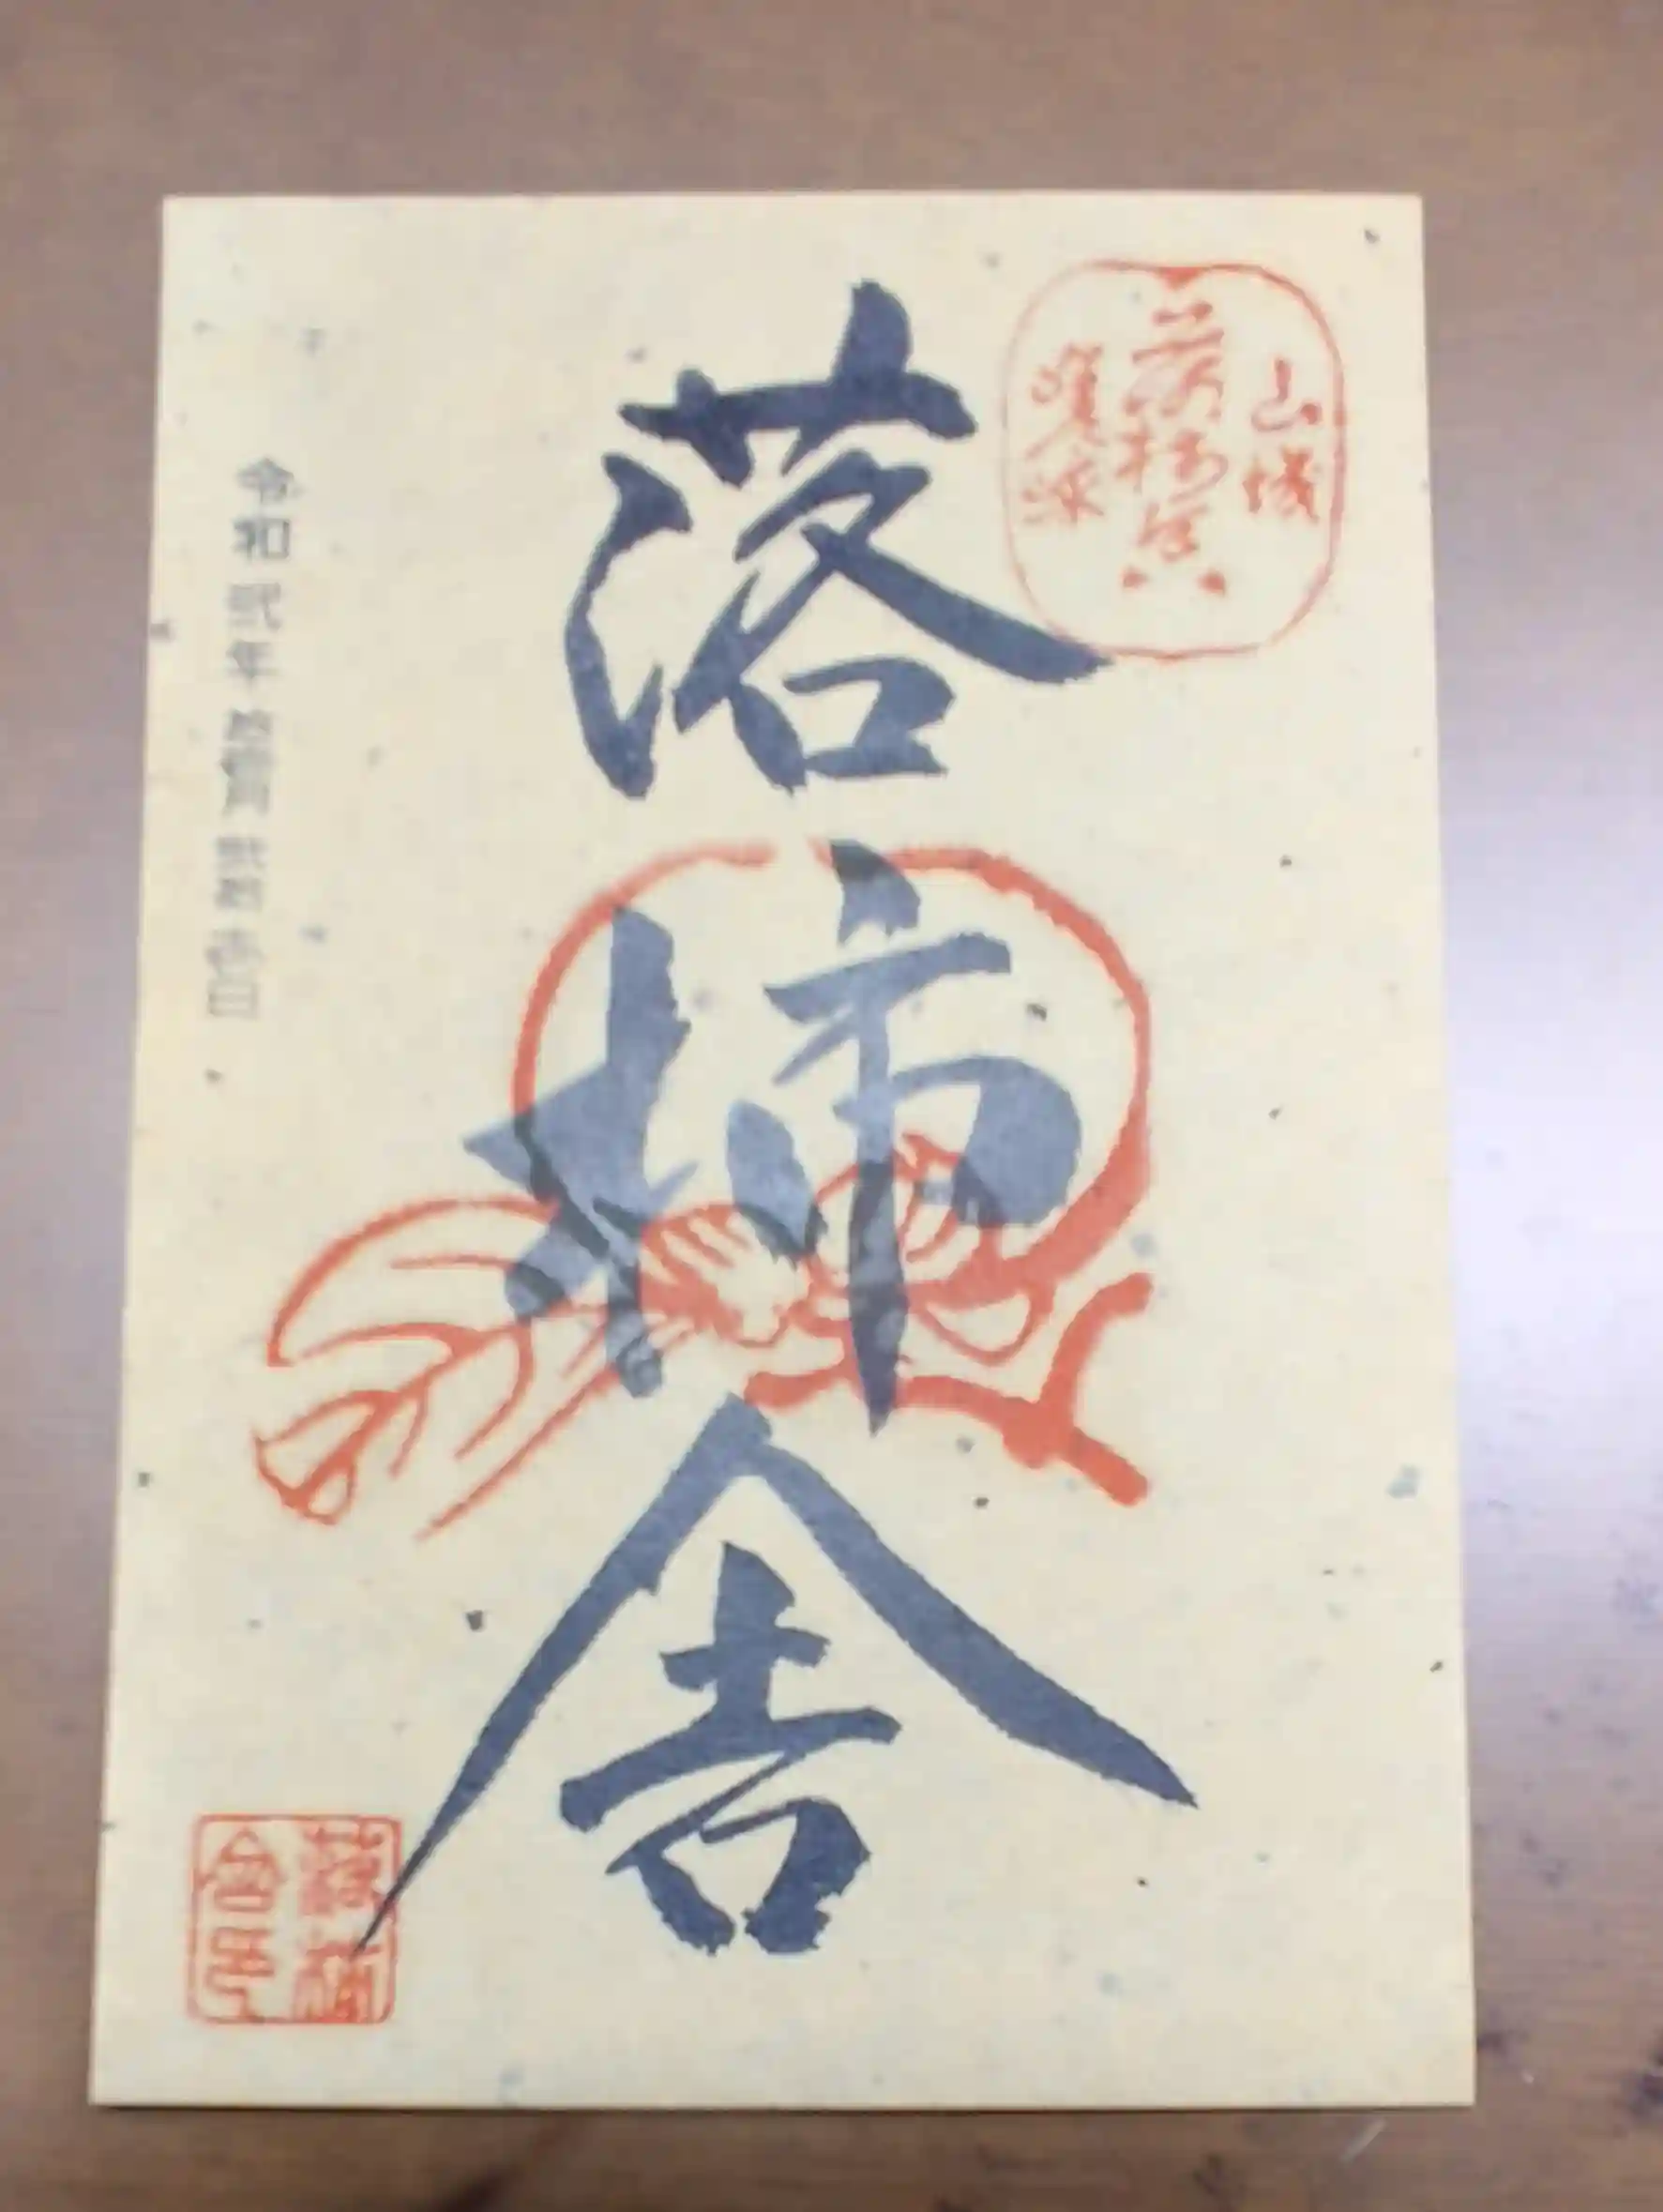 山城
落柿舎
嵯峨
落柿舎
令和弐年拾壹月弐拾壱日
落柿
舎印